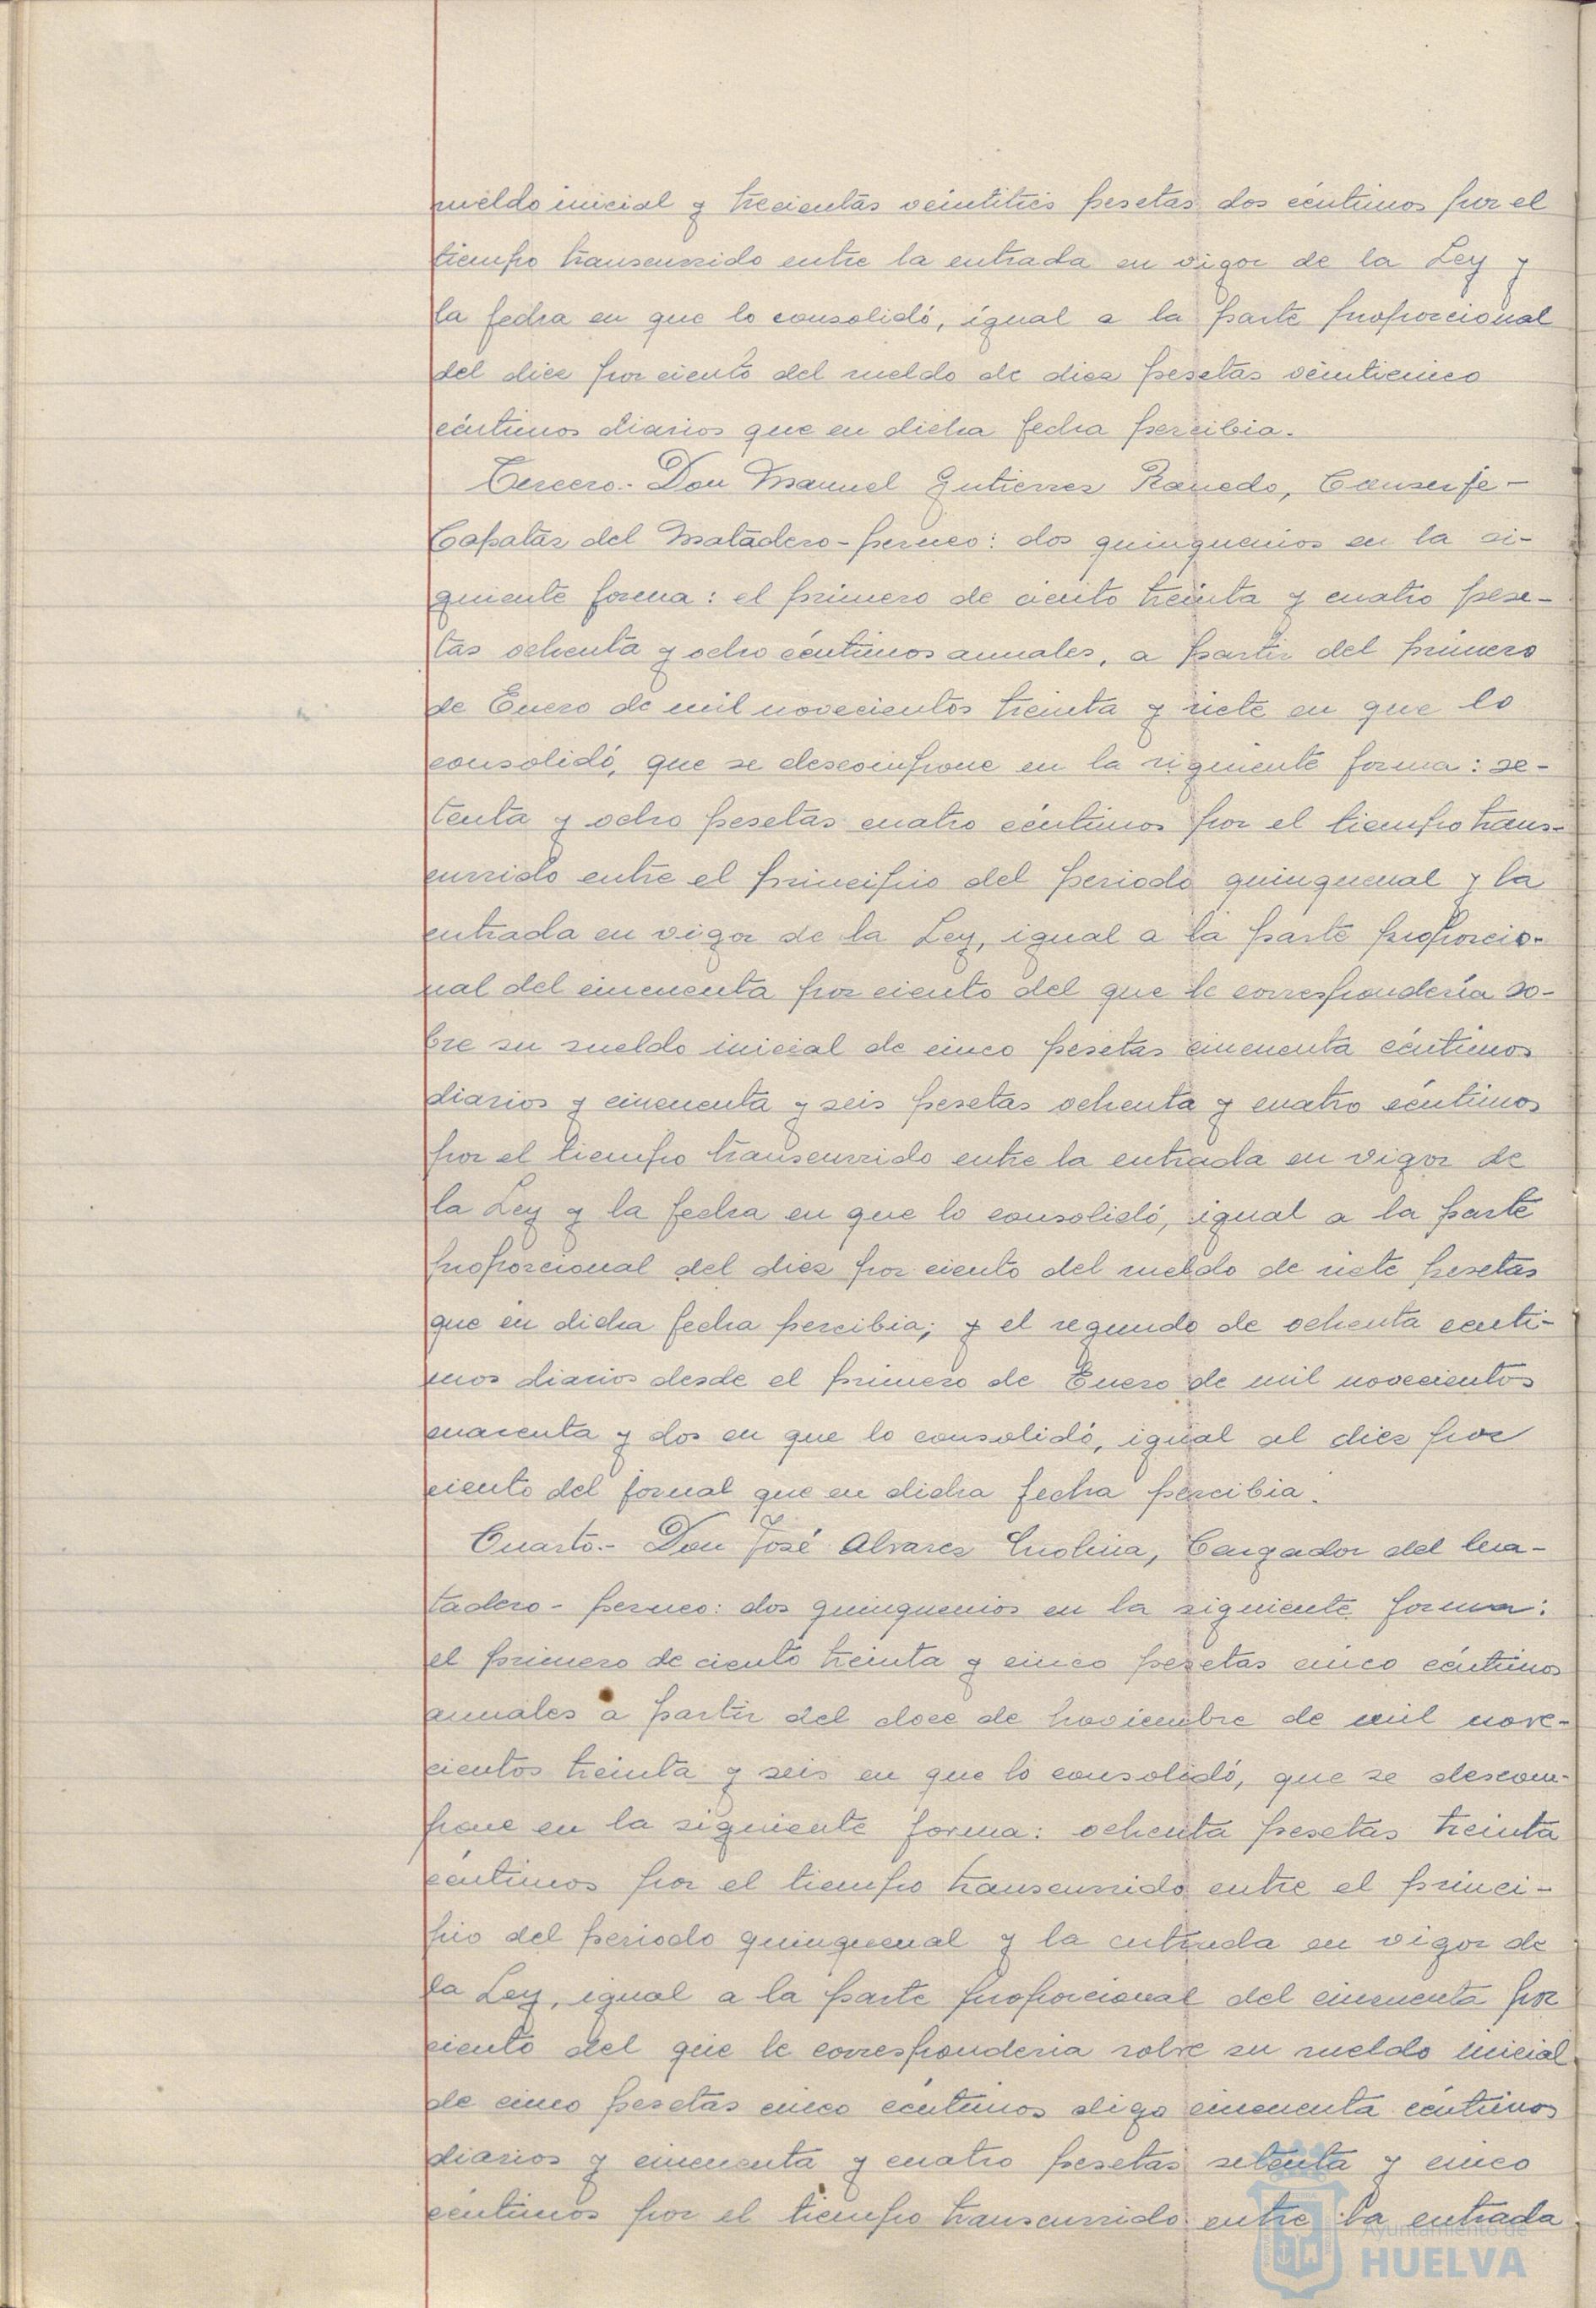 sueldo inicial y trecientas veintitrés pesetas dos céntimos por el
tiempo transcurrido entre la entrada en vigor de la Ley y
la fecha en que lo consolidó, igual a la parte proporcional
del diez por ciento del sueldo de diez pesetas veinticinco
céntimos diarios que en dicha fecha percibia.
Tercero.- Don Manuel Gutierrez Ranedo, Conserje-
Capatáz del Matadero-perneo: dos quinquenios en la si-
guiente forma: el primero de ciento treinta y cuatro pese-
tas ochenta y ocho céntimos anuales, a partir del primero
de Enero de mil novecientos treinta y siete en que lo
consolidó, que se descompone en la siguiente forma: se-
tenta y ocho pesetas cuatro céntimos por el tiempo trans-
currido entre el principio del periodo quinquenal y la
entrada en vigor de la Ley, igual a la parte proporcio-
nal del cincuenta por ciento del que le correspondería so-
bre su sueldo inicial de cinco pesetas cincuenta céntimos
diarios y cincuenta y seis pesetas ochenta y cuatro céntimos
por el tiempo transcurrido entre la entrada en vigor de
la Ley y la fecha en que lo consolidó, igual a la parte
proporcional del diez por ciento del sueldo de siete pesetas
que en dicha fecha percibia; y el segundo de ochenta centi-
mos diarios desde el primero de Enero de mil novecientos
cuarenta y dos en que lo consolidó, igual al diez por
ciento del jornal que en dicha fecha percibia.
Cuarto.- Don José Alvarez Molina, Cargador del Ma-
tadero-perneo: dos quinquenios en la siguiente forma:
el primero de ciento treinta y cinco pesetas cinco céntimos
anuales a partir del doce de Noviembre de mil nove-
cientos treinta y seis en que lo consolidó, que se descom-
pone en la siguiente forma: ochenta pesetas treinta
céntimos por el tiempo transcurrido entre el princi-
pio del periodo quinquenal y la entrada en vigor de
la Ley, igual a la parte proporcional del cincuenta por
ciento del que le corresponderia sobre su sueldo inicial
de cinco pesetas cinco céntimos digo cincuenta céntimos
diarios y cincuenta y cuatro pesetas setenta y cinco
céntimos por el tiempo transcurrido entre la entrada
Ayuntamiento de
HUELVA